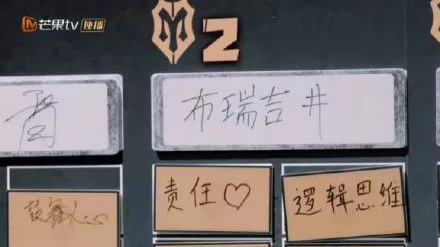 芒果tv 独播
2
布瑞吉井
鼓舞人心
责任♡
逻辑思维